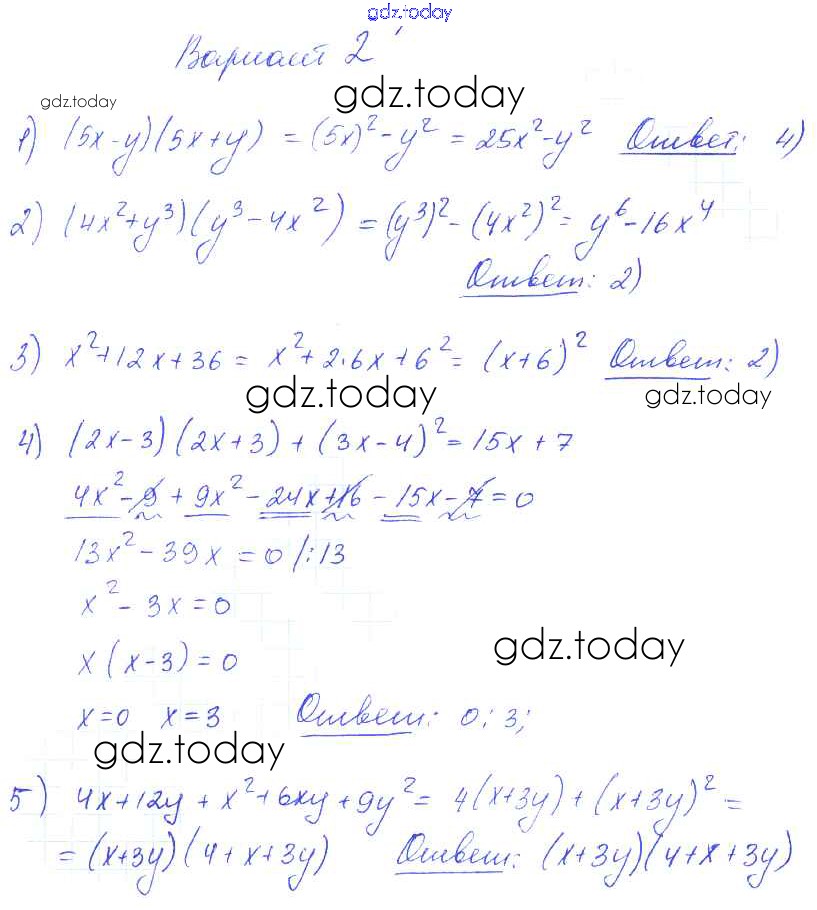 gdz.today
Вариант 2
gdz.today
gdz.today
1) (5x-y)(5x+y) = (5x)² - y² = 25x² - y² Ответ: 4)
2) (4x²+y³)(y³-4x²) = (y³)² - (4x²)² = y⁶ - 16x⁴
Ответ: 2)
3) x²+12x+36 = x²+2·6x+6² = (x+6)² Ответ: 2)
gdz.today
gdz.today
4) (2x-3)(2x+3) + (3x-4)² = 15x + 7
4x² - 9 + 9x² - 24x + 16 - 15x - 7 = 0
13x² - 39x = 0 /:13
x² - 3x = 0
x(x-3) = 0
gdz.today
x=0 x=3 Ответ: 0; 3;
gdz.today
5) 4x+12y + x²+6xy+9y² = 4(x+3y) + (x+3y)² =
= (x+3y)(4+x+3y) Ответ: (x+3y)(4+x+3y)